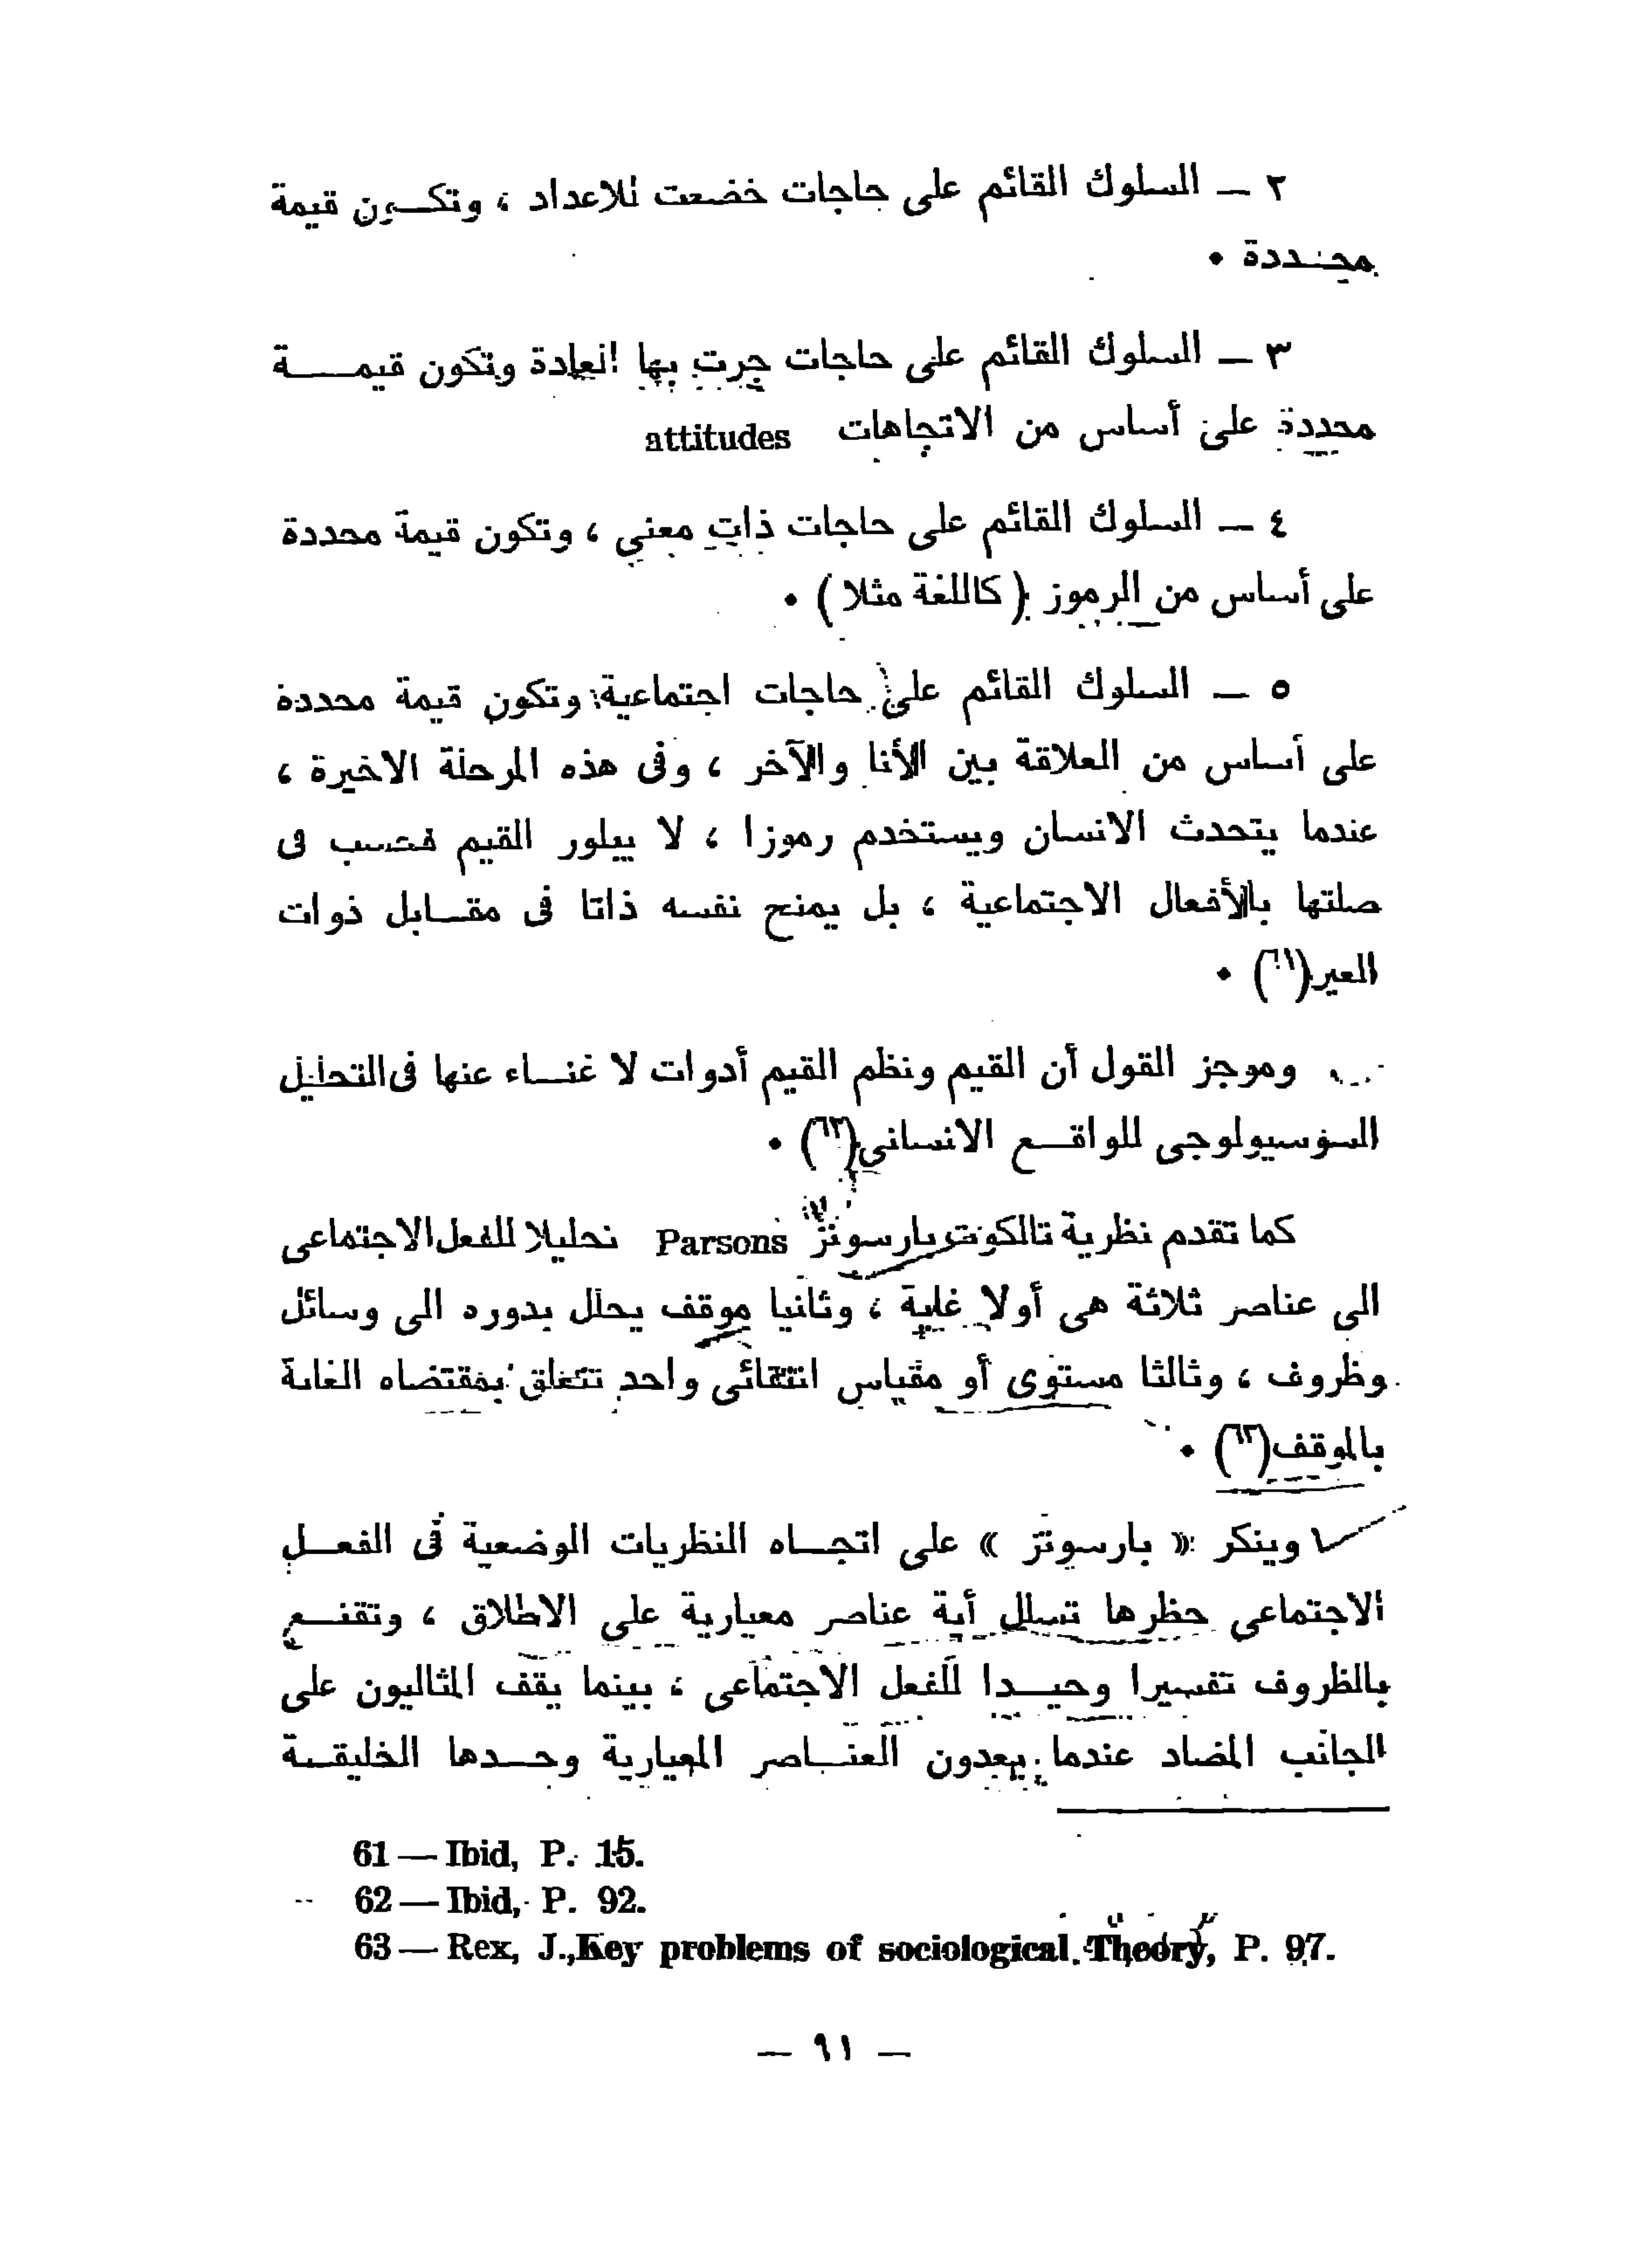 ٢ — السلوك القائم على حاجات خضعت للاعداد ، وتكون قيمة
محددة •
٣ — السلوك القائم على حاجات جرت بها العادة وتكون قيمة
محددة على أساس من الاتجاهات attitudes
٤ — السلوك القائم على حاجات ذات معنى ، وتكون قيمة محددة
على أساس من الرموز ( كاللغة مثلا ) •
٥ — السلوك القائم على حاجات اجتماعية وتكون قيمة محددة
على أساس من العلاقة بين الأنا والآخر ، وفى هذه المرحلة الاخيرة ،
عندما يتحدث الانسان ويستخدم رموزا ، لا يبلور القيم فحسب فى
صلتها بالأفعال الاجتماعية ، بل يمنح نفسه ذاتا فى مقابل ذوات
الغير(٦١) •
وموجز القول أن القيم ونظم القيم أدوات لا غناء عنها فى التحليل
السوسيولوجى للواقع الانسانى(٦٢) •
كما تقدم نظرية تالكوت بارسونز Parsons تحليلا للفعل الاجتماعى
الى عناصر ثلاثة هى أولا غاية ، وثانيا موقف يحلل بدوره الى وسائل
وظروف ، وثالثا مستوى أو مقياس انتقائى واحد تتعلق بمقتضاه الغاية
بالموقف(٦٣) •
وينكر « بارسونز » على اتجاه النظريات الوضعية فى الفعل
الاجتماعى حظرها تسلل أية عناصر معيارية على الاطلاق ، وتقنع
بالظروف تفسيرا وحيدا للفعل الاجتماعى ، بينما يقف المثاليون على
الجانب المضاد عندما يعدون العناصر المعيارية وحدها الخليقة
61 — Ibid, P. 15.
62 — Ibid, P. 92.
63 — Rex, J., Key problems of sociological Theory, P. 97.
— ٩١ —